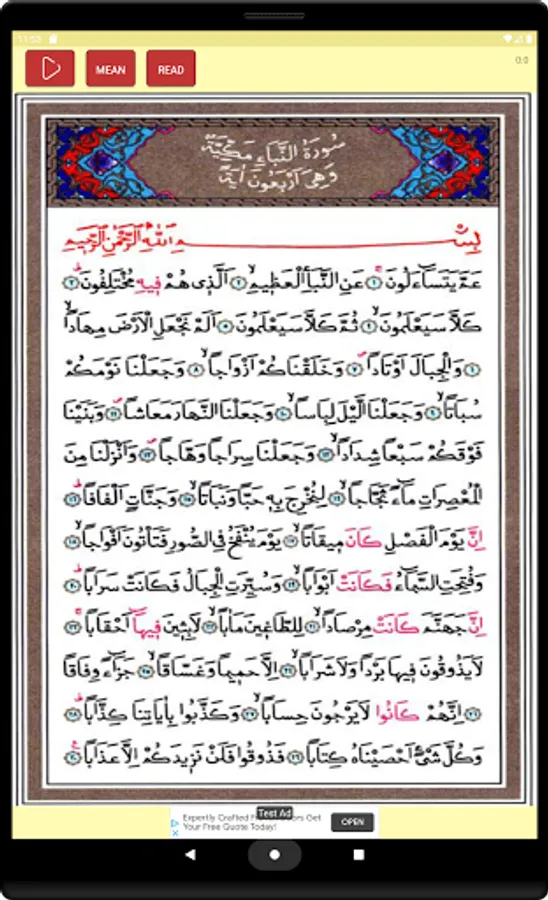 11:53
MEAN READ 0:0
سُورَةُ النَّبَاِ مَكِّيَّةٌ
وَهِيَ اَرْبَعُونَ اٰيَةً
بِسْمِ اللّٰهِ الرَّحْمٰنِ الرَّحِيمِ
عَمَّ يَتَسَٓاءَلُونَۚ ﴿١﴾ عَنِ النَّبَأِ الْعَظِيمِۙ ﴿٢﴾ اَلَّذ۪ي هُمْ ف۪يهِ مُخْتَلِفُونَۜ ﴿٣﴾
كَلَّا سَيَعْلَمُونَۙ ﴿٤﴾ ثُمَّ كَلَّا سَيَعْلَمُونَ ﴿٥﴾ اَلَمْ نَجْعَلِ الْاَرْضَ مِهَاداًۙ
﴿٦﴾ وَالْجِبَالَ اَوْتَاداًۖ ﴿٧﴾ وَخَلَقْنَاكُمْ اَزْوَاجاًۙ ﴿٨﴾ وَجَعَلْنَا نَوْمَكُمْ
سُبَاتاًۙ ﴿٩﴾ وَجَعَلْنَا الَّيْلَ لِبَاساًۙ ﴿١٠﴾ وَجَعَلْنَا النَّهَارَ مَعَاشاًۖ ﴿١١﴾ وَبَنَيْنَا
فَوْقَكُمْ سَبْعاً شِدَاداًۙ ﴿١٢﴾ وَجَعَلْنَا سِرَاجاً وَهَّاجاًۖ ﴿١٣﴾ وَاَنْزَلْنَا مِنَ
الْمُعْصِرَاتِ مَٓاءً ثَجَّاجاًۙ ﴿١٤﴾ لِنُخْرِجَ بِه۪ حَباًّ وَنَبَاتاًۙ ﴿١٥﴾ وَجَنَّاتٍ اَلْفَافاًۜ ﴿١٦﴾
اِنَّ يَوْمَ الْفَصْلِ كَانَ م۪يقَاتاًۙ ﴿١٧﴾ يَوْمَ يُنْفَخُ فِي الصُّورِ فَتَأْتُونَ اَفْوَاجاًۙ ﴿١٨﴾
وَفُتِحَتِ السَّمَٓاءُ فَكَانَتْ اَبْوَاباًۙ ﴿١٩﴾ وَسُيِّرَتِ الْجِبَالُ فَكَانَتْ سَرَاباًۜ ﴿٢٠﴾
اِنَّ جَهَنَّمَ كَانَتْ مِرْصَاداًۙ ﴿٢١﴾ لِلطَّاغ۪ينَ مَاٰباًۙ ﴿٢٢﴾ لَابِث۪ينَ ف۪يهَٓا اَحْقَاباًۚ ﴿٢٣﴾
لَا يَذُوقُونَ ف۪يهَا بَرْداً وَلَا شَرَاباًۙ ﴿٢٤﴾ اِلَّا حَم۪يماً وَغَسَّاقاًۙ ﴿٢٥﴾ جَزَٓاءً وِفَاقاًۜ
﴿٢٦﴾ اِنَّهُمْ كَانُوا لَا يَرْجُونَ حِسَاباًۙ ﴿٢٧﴾ وَكَذَّبُوا بِاٰيَاتِنَا كِذَّاباًۜ ﴿٢٨﴾
وَكُلَّ شَيْءٍ اَحْصَيْنَاهُ كِتَاباًۙ ﴿٢٩﴾ فَذُوقُوا فَلَنْ نَز۪يدَكُمْ اِلَّا عَذَاباًۚ ﴿٣٠﴾
Test Ad
Expertly Crafted Get
Your Free Quote Today!
OPEN